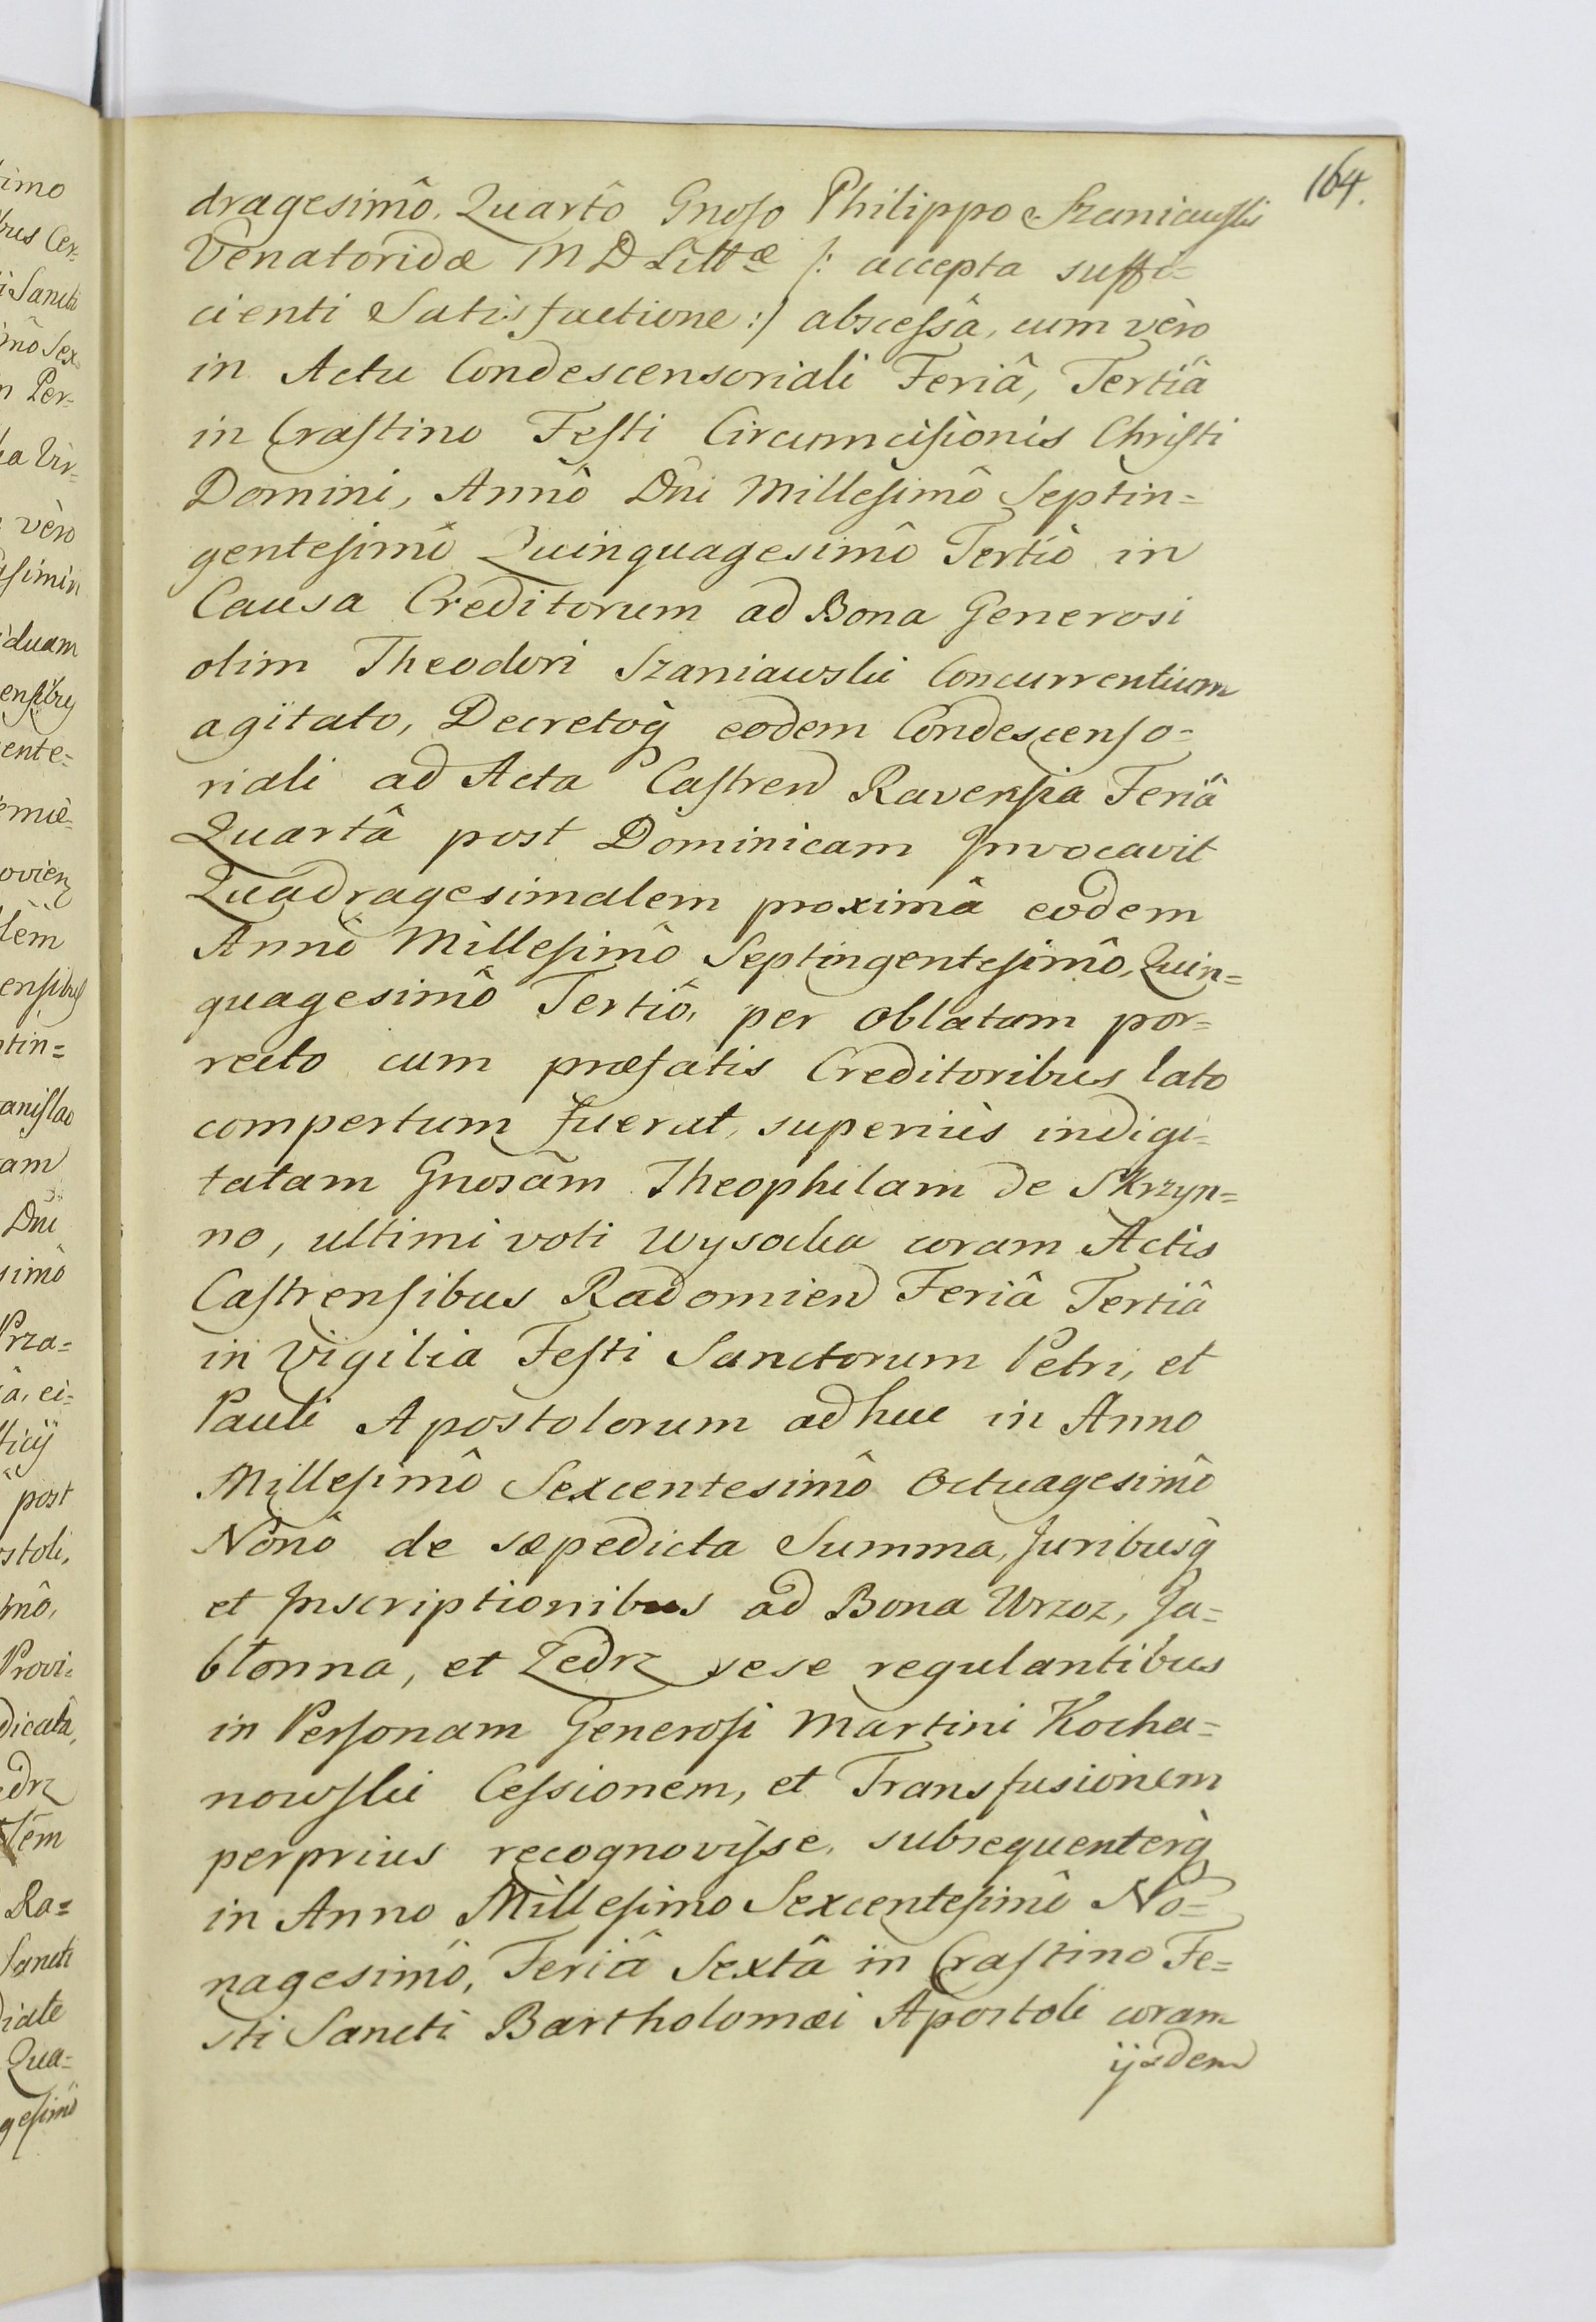 164.
dragesimô, Quartô Gnoso Philippo Szaniawski
Venatoridæ M D Littæ /: accepta suffi=
cienti Satisfactione :/ abscessâ, cum vèro
in Actu Condescensoriali Feriâ, Tertiâ
in Crastino Festi Circumcisionis Christi
Domini, Annô Dni Millesimô Septin=
gentesimô Quinquagesimô Tertiô in
Causa Creditorum ad Bona Generosi
olim Theodori Szaniawski Concurrentium
agitato, Decretoq̀ eodem Condescenso=
riali ad Acta Castren Ravensia Feriâ
Quartâ post Dominicam Invocavit
Quadragesimalem proximâ eodem
Annô Millesimô Septingentesimô, Quin=
quagesimô Tertiô, per oblatam por=
recto cum præfatis Creditoribus lato
compertum fuerat, superiùs indigi=
tatam Gnosam Theophilam de Skrzyn=
no, ultimi voti Wysocka coram Actis
Castrensibus Radomien Feriâ Tertiâ
in Vigilia Festi Sanctorum Petri, et
Pauli Apostolorum adhuc in Anno
Millesimô Sexcentesimô Octuagesimô
Nonô de sæpedicta Summa, Juribusq̀
et Inscriptionibus ad Bona Wrzoz, Ja=
błonna, et Zedrz sese regulantibus
in Personam Generosi Martini Kocha=
nowski Cessionem, et Transfusionem
perprius recognovisse, subsequenterq̀
in Anno Millesimo Sexcentesimô No=
nagesimô, Feriâ Sextâ in Crastino Fe=
sti Sancti Bartholomæi Apostoli coram
ijsdem